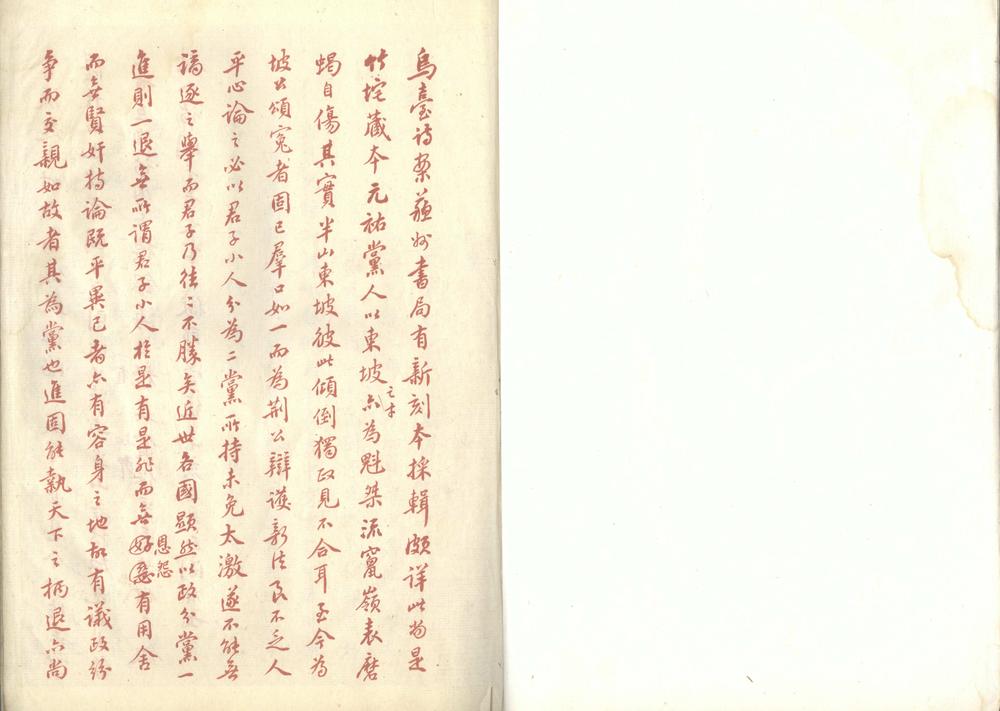 烏臺詩案蘇州書局有新刻本採輯頗详此尚是
竹垞藏本元祐黨人以東坡之才亦為魁桀流竄嶺表磨
蝎自傷其實半山東坡彼此傾倒獨政見不合耳至今為
坡公頌寃者固已羣口如一而為荆公辯護新法良不乏人
平心論之必以君子小人分為二黨所持未免太激遂不能無
謫逐之舉而君子乃往〻不勝矣近世各國顯然以政分黨一
進則一退無所謂君子小人於是有是非而無恩怨有用舍
而無賢奸持論既平異己者亦有容身之地故有議政紛
爭而交親如故者其為黨也進固能執天下之柄退亦尚